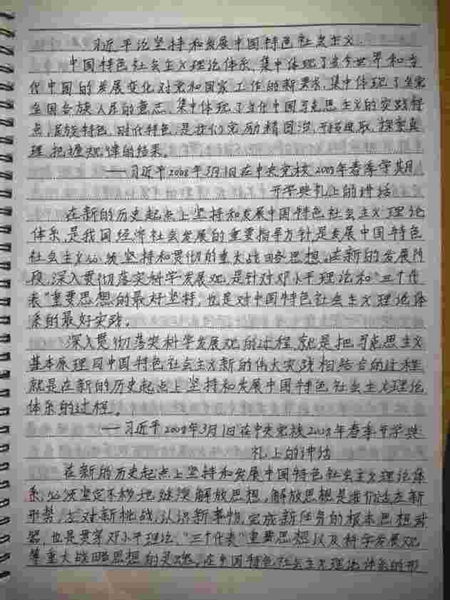 习近平论坚持和发展中国特色社会主义
中国特色社会主义理论体系,集中体现了当今世界和当
代中国的发展变化对党和国家工作的新要求,集中体现了全党
全国各族人民的意志,集中体现了当代中国马克思主义的实践特
点、民族特色、时代特色,是我们党励精图治、开拓进取、探索真
理、把握规律的结果。
——习近平2008年3月1日在中央党校2008年春季学期
开学典礼上的讲话
在新的历史起点上坚持和发展中国特色社会主义理论
体系,是我国经济社会发展的重要指导方针,是发展中国特色
社会主义必须坚持和贯彻的重大战略思想。在新的发展阶
段,深入贯彻落实科学发展观,是针对邓小平理论和“三个代
表”重要思想的最好坚持,也是对中国特色社会主义理论体
系的最好实践。
深入贯彻落实科学发展观的过程,就是把马克思主义
基本原理同中国特色社会主义新的伟大实践相结合的过程,
就是在新的历史起点上坚持和发展中国特色社会主义理论
体系的过程。
——习近平2008年3月1日在中央党校2008年春季开学典
礼上的讲话
在新的历史起点上坚持和发展中国特色社会主义理论体
系,必须坚定不移地继续解放思想。解放思想是我们适应新
形势、应对新挑战、认识新事物、完成新任务的根本思想武
器,也是贯穿邓小平理论、“三个代表”重要思想以及科学发展观
等重大战略思想的灵魂。在中国特色社会主义理论体系的形